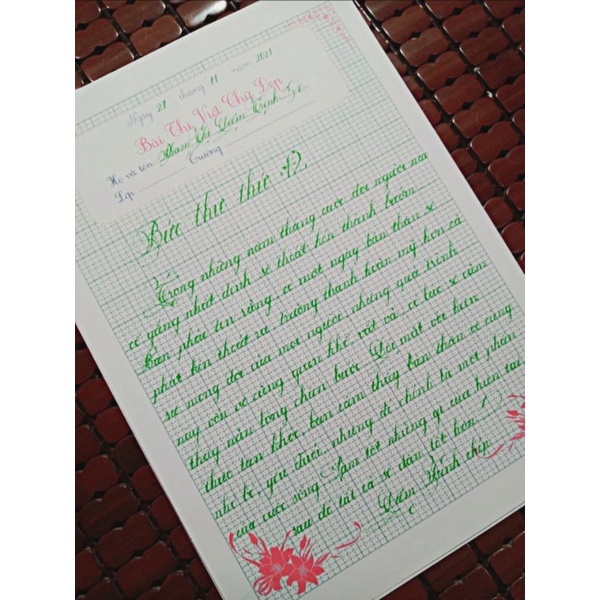 Ngày 27 tháng 11 năm 2021
Bài Thi Viết Chữ Đẹp
Họ và tên Phạm Thị Diễm Trinh
Lớp Trường
Bức thư thứ 12
Trong những năm tháng cuộc đời người nào
cố gắng nhất định sẽ thoát kén thành bướm
Bạn phải tin rằng, có một ngày bản thân sẽ
phát kén thoát ra, trưởng thành hoàn mỹ hơn cả
sự mong đợi của mọi người, nhưng quá trình
này vốn vô cùng gian khổ, vất vả, có lúc sẽ cảm
thấy nản lòng chùn bước. Đối mặt với hiện
thực tàn khốc, bạn cảm thấy bản thân vô cùng
nhỏ bé, yếu đuối, nhưng đó chính là một phần
của cuộc sống. Làm tốt những gì của hiện tại,
sau đó tất cả sẽ dần tốt hơn!
Diễm Trinh chép